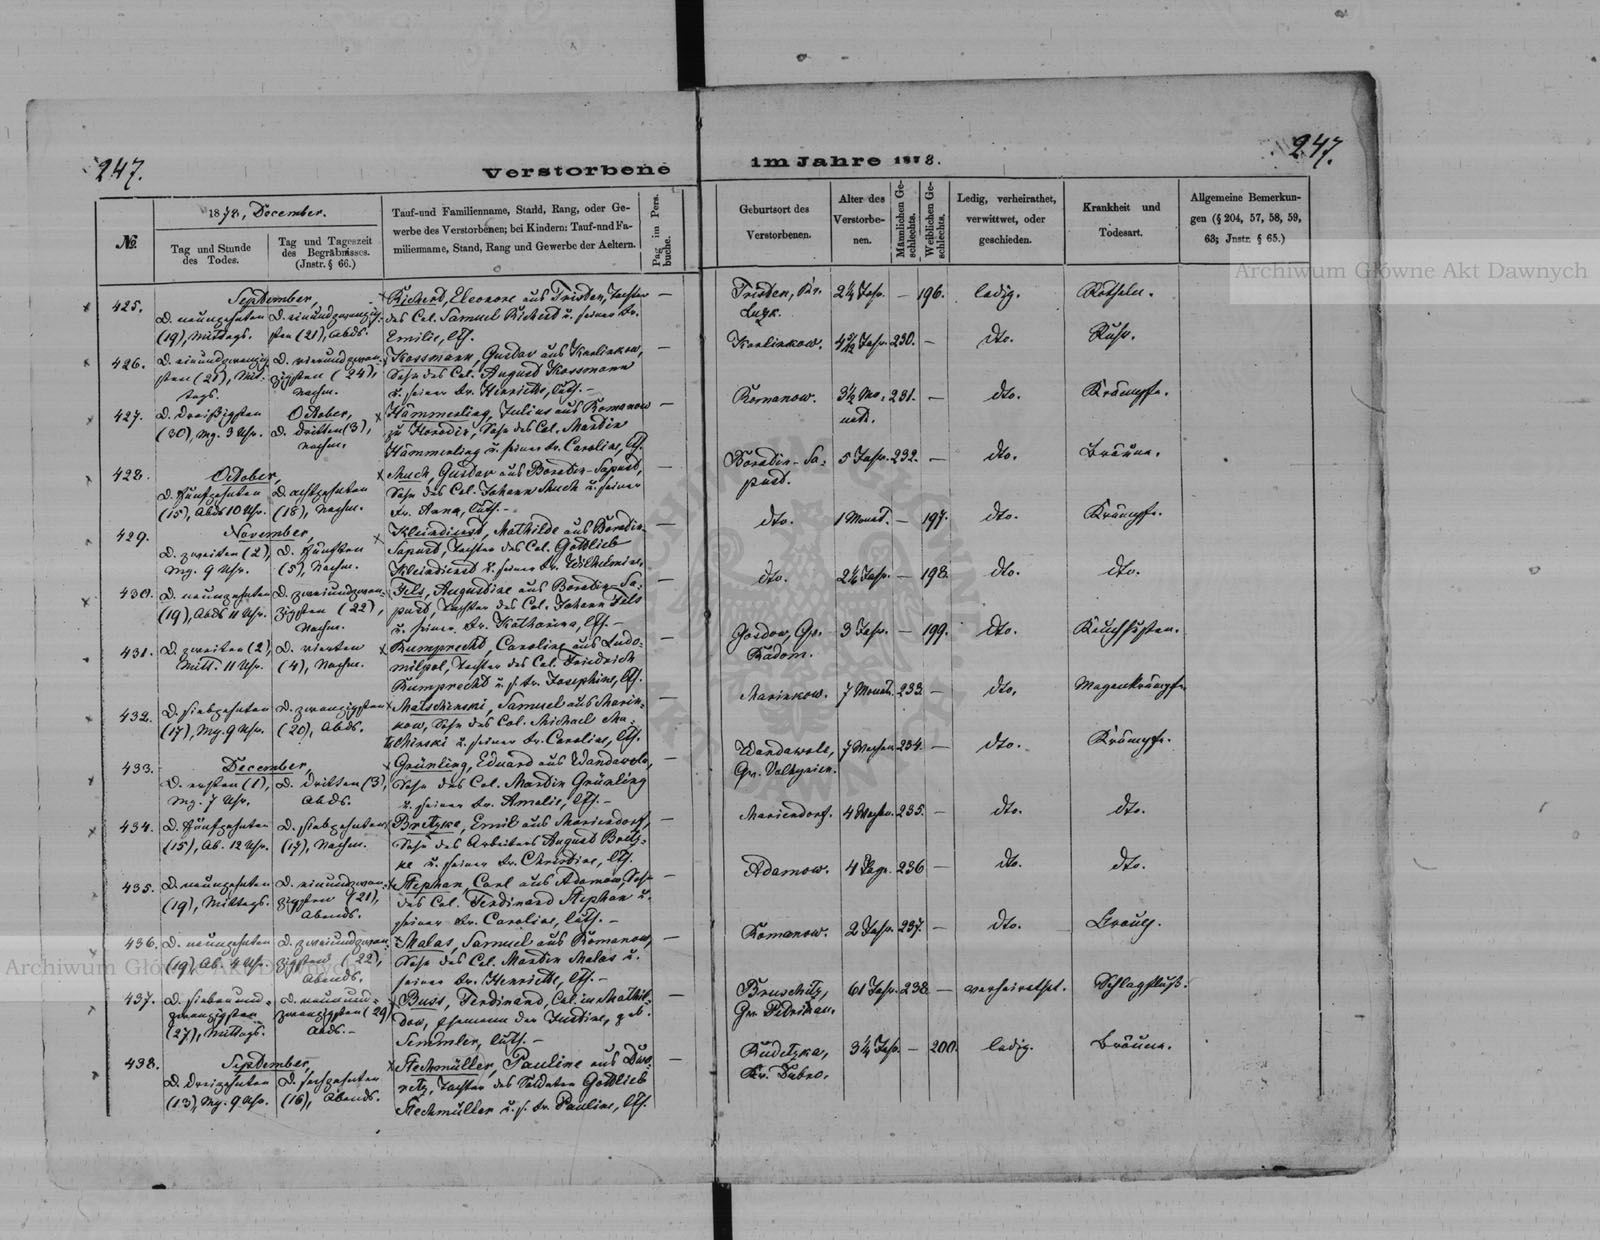 247.
Verstorbene
im Jahre 1878.
247.
№
1878, December.
Tag und Stunde des Todes.
Tag und Tageszeit des Begräbnisses. (Instr. § 66.)
Tauf-und Familienname, Stand, Rang, oder Ge-
werbe des Verstorbenen; bei Kindern: Tauf-und Fa-
milienname, Stand, Rang und Gewerbe der Aeltern.
Pag. im Pers. buche.
Geburtsort des Verstorbenen.
Alter des Verstorbe-nen.
Männlichen Ge-schlechts.
Weiblichen Ge-schlechts.
Ledig, verheirathet, verwittwet, oder geschieden.
Krankheit und Todesart.
Allgemeine Bemerkun-
gen (§ 204, 57, 58, 59,
63; Jnstr. § 65.)
Archiwum Główne Akt Dawnych
425.
September,
D. neunzehnten
(19), Mittags.
D. einundzwanzig-
sten (21), Abds.
Eleonore aus Tristen, Tochter
des Col. Samuel
Emilie, luth.
Tristen, Kr.
Luzk.
2¼ Jahr. — 196.
ledig.
Rötheln.
426.
D. einundzwanzig-
sten (21), Mit-
tags.
D. vierundzwan-
zigsten (24),
Nachm.
Kossmann, Gustav aus Karlinkow,
Sohn des Col. August Kossmann
u. seiner Fr. Henriette, luth. —
Karlinkow.
230. —
dto.
Ruhr.
427.
D. dreißigsten
(30), Mg. 3 Uhr.
October,
D. dritten (3),
Nachm.
Hämmerling, Julius aus Romanow
Sohn des Col. Martin
Hämmerling u. seiner Fr. Caroline, lth.
Romanow.
3½ Mo-
nat.
231. —
dto.
Krämpfe.
428.
October,
D. fünfzehnten
(15), Abds 10 Uhr.
D. achtzehnten
(18), Nachm.
Much, Gustav aus Boratin-Sapust,
Sohn des Col. Johann Much u. seiner
Fr. Anna, luth. —
Boratin-Sa-
pust.
5 Jahr. 232. —
dto.
Bräune.
429.
November,
D. zweiten (2),
Mg. 9 Uhr.
D. fünften
(5), Nachm.
Kleindienst, Mathilde aus Boratin-
Sapust, Tochter des Col. Gottlieb
Kleindienst u. seiner Fr. Wilhelmine.
dto.
1 Monat. — 197.
dto.
Krämpfe.
430.
D. neunzehnten
(19), Abds 11 Uhr.
D. zweiundzwan-
zigsten (22),
Nachm.
Fels, Augustine aus Boratin-Sa-
pust, Tochter des Col. Johann Fels
u. seiner Fr. Katharina, lth. —
dto.
2¼ Jahr. — 198.
dto.
dto.
431.
D. zweiten (2),
Mitt. 11 Uhr.
D. vierten
(4), Nachm.
Rumprecht, Caroline aus Ludo-
milpol, Tochter des Col. Friedrich
Rumprecht u. s. Fr. Josephine, lth.
Gv.
Radom.
3 Jahr. — 199.
dto.
Keuchhusten.
432.
D. siebzehnten
(17), Mg. 9 Uhr.
D. zwanzigsten
(20), Abds.
Matschinski, Samuel aus Marin-
kow, Sohn des Col. Michael Ma-
tschinski u. seiner Fr. Caroline, lth.
Marinkow.
7 Monat. 233. —
dto.
Magenkrämpfe.
433.
December,
D. ersten (1),
Mg. 7 Uhr.
D. dritten (3),
Abds.
Grünling, Eduard aus Wandawola,
Sohn des Col. Martin Grünling
u. seiner Fr. Amalie, lth. —
Wandawola,
Gv. Volhynien.
7 Wochen 234. —
dto.
Krämpfe.
434.
D. fünfzehnten
(15), Ab. 12 Uhr.
D. siebzehnten
(17), Nachm.
Bretzke, Emil aus Mariendorf,
Sohn des Arbeiters August Bretz-
ke u. seiner Fr. Christine, lth.
Mariendorf.
4 Wochn. 235. —
dto.
dto.
435.
D. neunzehnten
(19), Mittags.
D. einundzwan-
zigsten (21),
Abends.
Stephan, Carl aus Adamow, Sohn
des Col. Ferdinand Stephan u.
seiner Fr. Caroline, luth. —
Adamow.
4 Tage. 236 —
dto.
dto.
436.
D. neunzehnten
(19), Ab. 4 Uhr.
D. zweiundzwan-
zigsten (22),
Abends.
Malas, Samuel aus Romanow,
Sohn des Col. Martin Malas u.
seiner Fr. Henriette, lth. —
Romanow.
2 Jahr. 237. —
dto.
437.
D. siebenund-
zwanzigsten
(27), Mittags.
D. neunund-
zwanzigsten (29)
Abds. —
Buss, Ferdinand, Col. in Mathil-
dow, Ehemann der Justine, geb.
Semmler, luth. —
Bruschitz,
Gv. Petrikau.
61 Jahr. 238. —
verheirathet.
Schlagfluß.
438.
September,
D. dreizehnten
(13), Mg. 9 Uhr.
D. sechzehnten
(16), Abends.
Stechmüller, Pauline aus
Tochter des Soldaten Gottlieb
Stechmüller u. s. Fr. Pauline, lth.
Rudetzka,
Kr. Dubno.
3¼ Jahr. — 200.
ledig.
Bräune.
Archiwum Główne Akt Dawnych